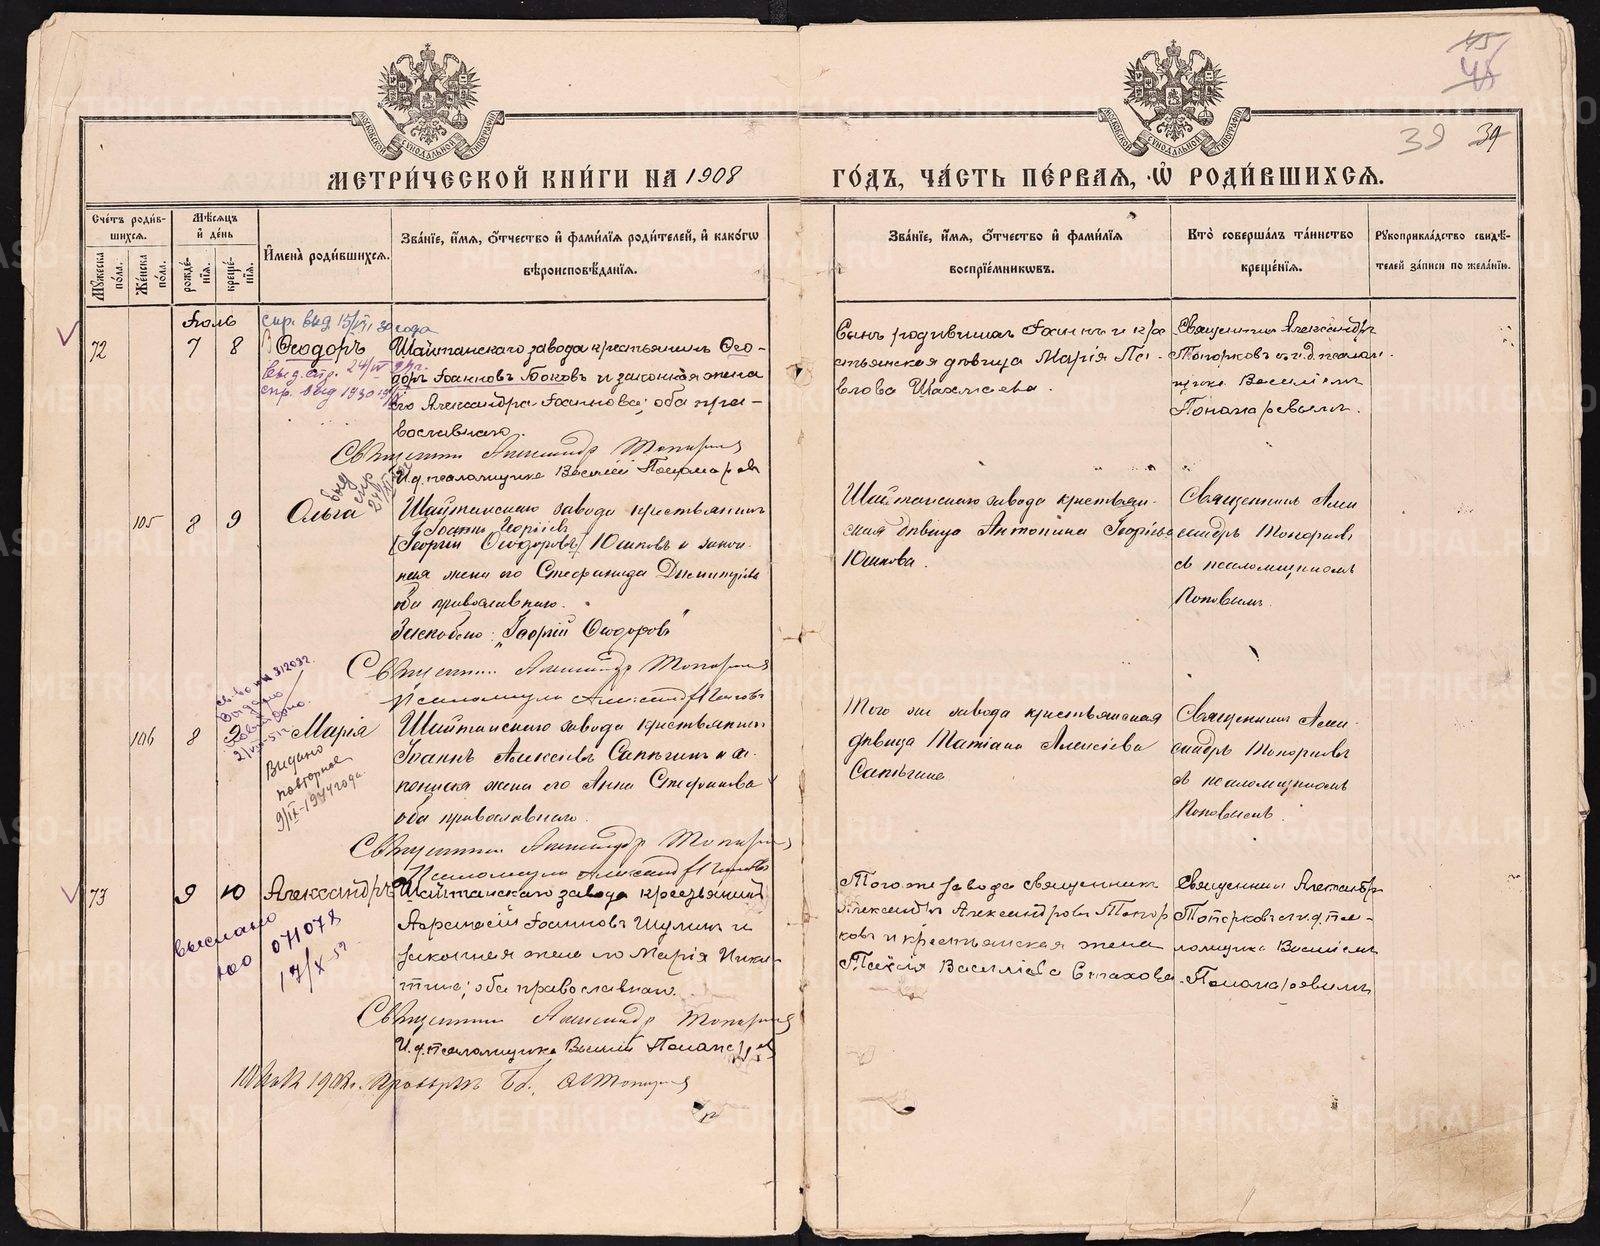 45
45
39 34
МОСКОВСКОЙ СѴНОДАЛЬНОЙ ТИПОГРАФІИ
МОСКОВСКОЙ СѴНОДАЛЬНОЙ ТИПОГРАФІИ
МЕТРИ́ЧЕСКОЙ КНИ́ГИ НА 1908
ГО́ДЪ, ЧА́СТЬ ПЕ́РВАЯ, Ѡ РОДИ́ВШИХСЯ.
Сче́тъ роди́вшихся.
Му́жеска по́ла.
Же́нска по́ла.
Мѣ́сяцъ и де́нь
рожде́нія.
креще́нія.
Имена̀ роди́вшихся.
Зва́ніе, и́мя, о́тчество и фами́лія роди́телей, и како́гѡ
вѣроисповѣ́данія.
Зва́ніе, и́мя, о́тчество и фами́лія
воспріе́мникѡвъ.
Кто̀ соверша́лъ та́инство
креще́нія.
Рꙋкоприкла́дство свидѣ́-
телей за́писи по жела́нію.
Іюль
спр. выд. 15/VII 30 года
72 7 8 Ѳеодоръ
Выд. спр. 24/IV
спр. выд 1930
Шайтанскаго завода крестьянинъ Ѳео-
доръ Іоанновъ Боковъ и законная жена
его Александра Іоаннова; оба пра-
вославнаго.
Священник Александр Топорков
И.д. псаломщика Василій Пономарев
крестьянская дѣвица Марія Па-
влова Шахмаева.
Священник Александр
Топорков съ и.д. псалом-
щика Василіем
Пономаревым.
105 8 9 Ольга
выд спр
Шайтанскаго завода крестьянин
Іоанн Георгіев
[Георгій Ѳеодоровъ] Юшков и закон-
ная жена его Стефанида Димитріева
оба православнаго.
Зачеркнуто: "Георгій Ѳеодоровъ"
Священник Александр Топорков
Псаломщик Александр Попов
Шайтанскаго завода крестьян-
ская дѣвица Антонина Георгіева
Юшкова.
Священник Алек
сандр Топорков
съ псаломщиком
Поповым.
106 8 9 Марія
Выдано
повторное
9/IX-1974 года.
Шайтанскаго завода крестьянин
Іоанн Алексѣев Сапѣгин и за-
конная жена его Анна Стефанова
оба православнаго.
Священник Александр Топорков
Псаломщик Александр Попов
Того же завода крестьянская
дѣвица Татіана Алексіева
Сапѣгина
Священник Алек-
сандр Топорков
съ псаломщиком
Поповым.
73 9 10 Александръ
выслано
ЮО 071078
17/X-59
Шайтанскаго завода крестьянин
Аѳанасій Іоанновъ Шулин и
законная жена его Марія Ники-
тина; оба православнаго.
Священник Александр Топорков
И.д. псаломщика Василій Пономарев
Того же завода священник
Александр Александров Топор
ков и крестьянская жена
Таисія Василіева Стахова
Священник Александр
Топорков и и.д. пса-
ломщика Василіем
Пономаревым
1908 г. проверил
METRIKI.GASO-URAL.RU